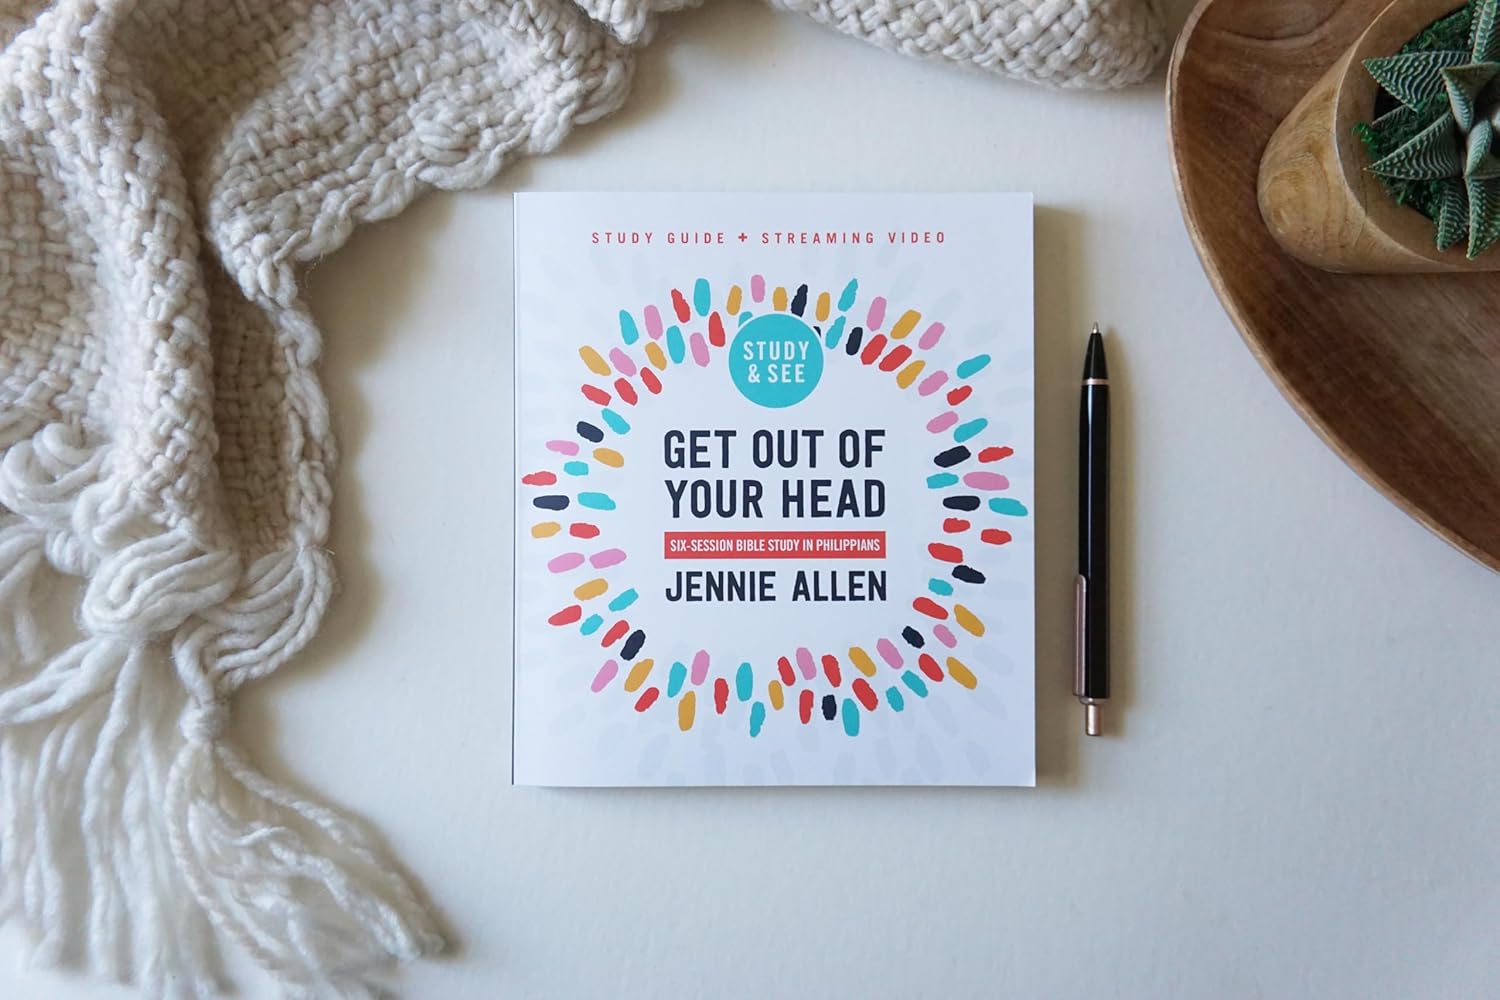 STUDY GUIDE + STREAMING VIDEO
STUDY
& SEE
GET OUT OF
YOUR HEAD
SIX-SESSION BIBLE STUDY IN PHILIPPIANS
JENNIE ALLEN